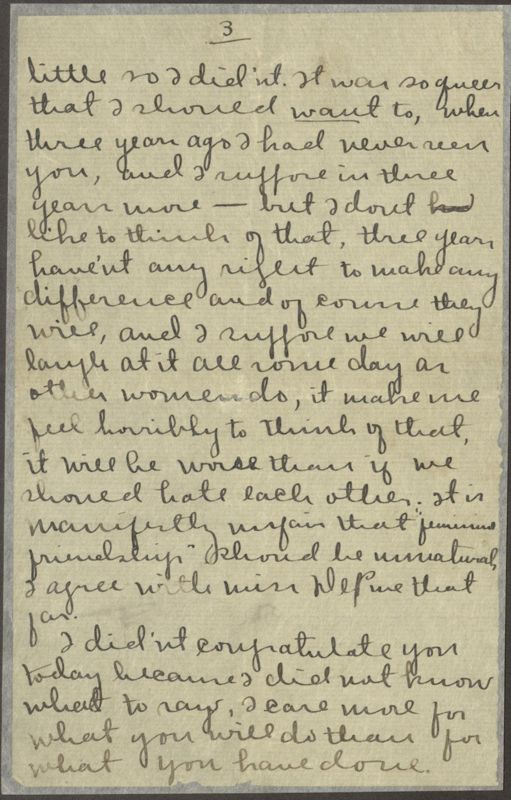 3
little so I did'nt. It was so queer
that I should want to, when
three years ago I had never seen
you, and I suppose in three
years more — but I dont
like to think of that, three years
have'nt any right to make any
difference and of course they
will, and I suppose we will
laugh at it all some day as
other women do, it makes me
feel horribly to think of that,
it will be worse than if we
should hate each other. It is
manifestly unfair that "feminine
friendships" should be unnatural,
I agree with Miss that
far.
I did'nt congratulate you
today because I did not know
what to say, I care more for
what you will do than for
what you have done.